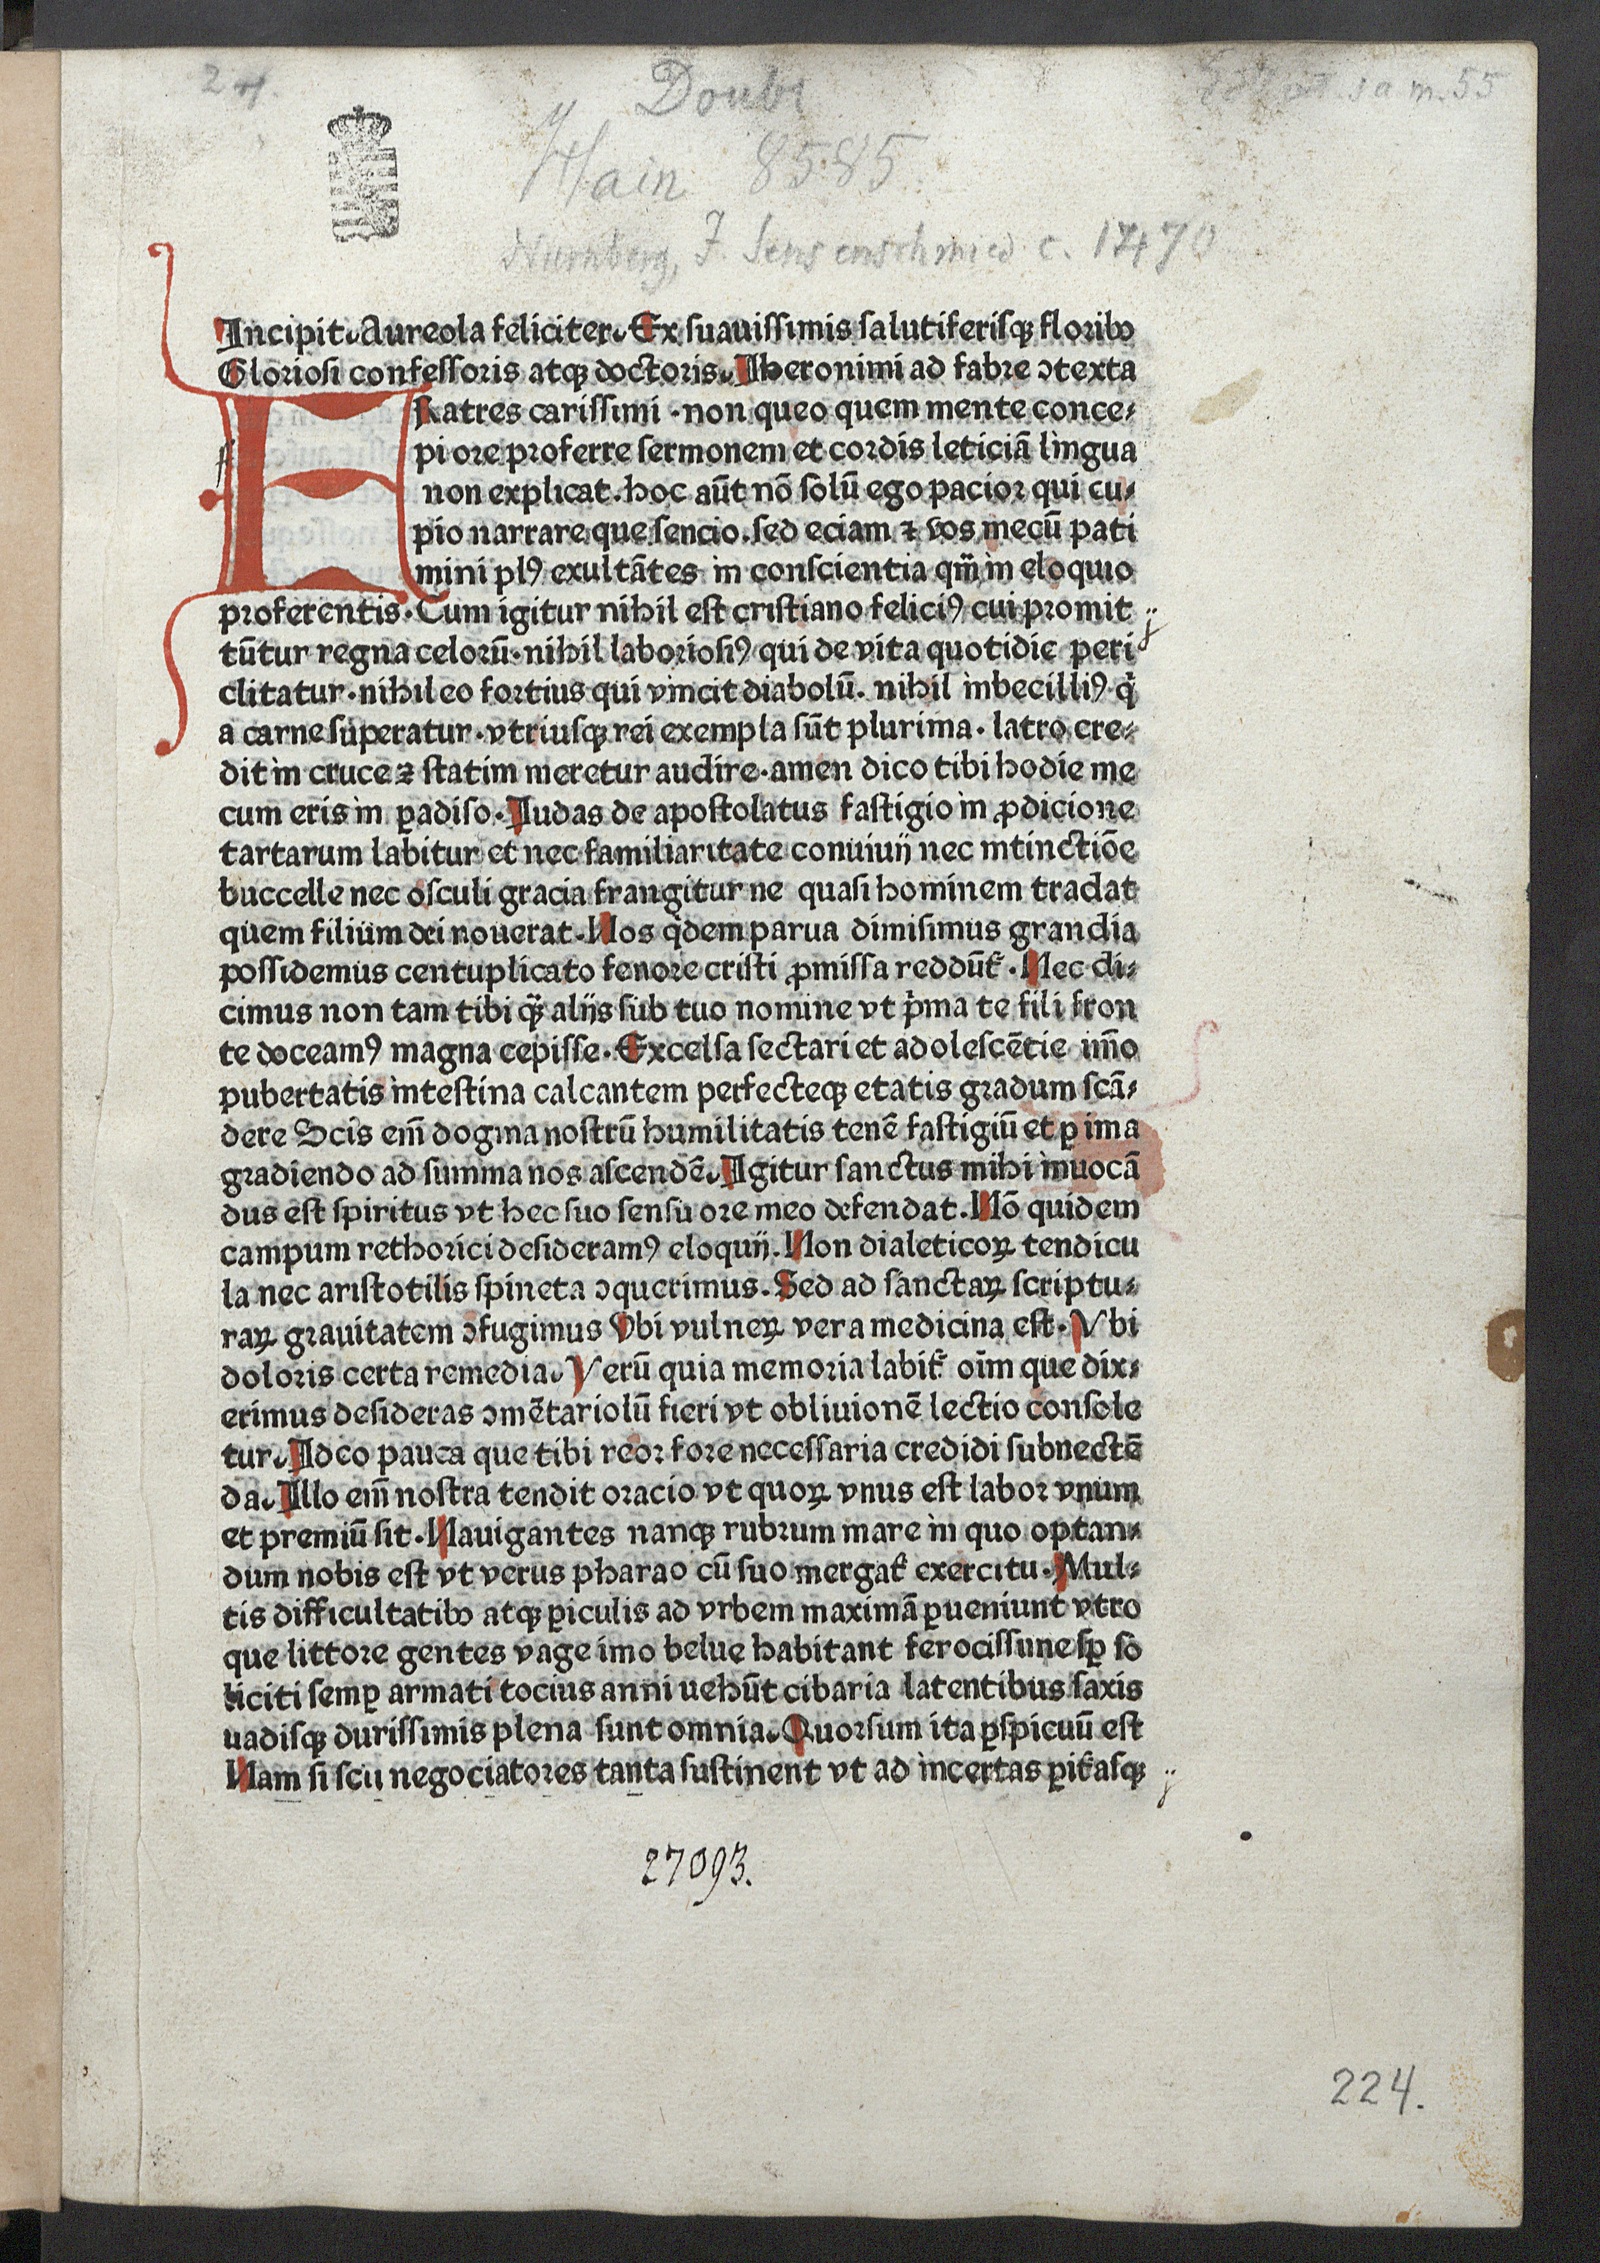 24.
Doubl
Hain 8585
Nürnberg, J. Sensenschmied c. 1470
Incipit. Aureola feliciter. Ex suauissimis salutiferisqꝫ floribꝰ
Gloriosi confessoris atqꝫ doctoris. Iheronimi ad fabre ↄtexta
FRatres carissimi ·non queo quem mente conce⸗
pi ore proferre sermonem et cordis leticiā lingua
non explicat. hoc aūt nō solū ego pacior qui cu⸗
pio narrare que sencio. sed eciam ⁊ vos mecū pati
mini plꝰ exultātes in conscientia qm̄ in eloquio
proferentis. Cum igitur nihil est cristiano feliciꝰ cui promit
tūtur regna celorū· nihil laboriosiꝰ qui de vita quotidie peri
clitatur· nihil eo fortius qui vincit diabolū. nihil inbecilliꝰ qͥ
a carne superatur· vtriusqꝫ rei exempla sūt plurima. latro cre⸗
dit in cruce ⁊ statim meretur audire· amen dico tibi hodie me
cum eris in ꝑadiso. Iudas de apostolatus fastigio in ꝓdicione
tartarum labitur et nec familiaritate conuiuij nec intinctiōe
buccelle nec osculi gracia frangitur ne quasi hominem tradat
quem filium dei nouerat. Nos qͥdem parua dimisimus grandia
possidemus centuplicato fenore cristi ꝓmissa reddūt᷑. Nec di⸗
cimus non tam tibi qꝫ̄ alijs sub tuo nomine vt pͥma te fili fron
te doceamꝰ magna cepisse. Excelsa sectari et adolescētie im̄o
pubertatis intestina calcantem perfecteqꝫ etatis gradum scā⸗
dere Scis em̄ dogma nostrū humilitatis tenē fastigiū et ꝑ ima
gradiendo ad summa nos ascendē. Igitur sanctus mihi inuocā
dus est spiritus vt hec suo sensu ore meo defendat. Nō quidem
campum rethorici desideramꝰ eloquij. Non dialeticoꝝ tendicu
la nec aristotilis spineta ↄquerimus. Sed ad sanctaꝝ scriptu⸗
raꝝ grauitatem ↄfugimus Vbi vulneꝝ vera medicina est. Vbi
doloris certa remedia. Verū quia memoria labit᷑ oīm que dix⸗
erimus desideras ↄmētariolū fieri vt obliuionē lectio console
tur. Ideo pauca que tibi reor fore necessaria credidi subnectē
da. Illo em̄ nostra tendit oracio vt quoꝝ vnus est labor vnum
et premiū sit. Nauigantes nanqꝫ rubrum mare in quo optan⸗
dum nobis est vt verus pharao cū suo mergat᷑ exercitu. Mul⸗
tis difficultatibꝰ atqꝫ ꝑiculis ad vrbem maximā ꝑueniunt vtro
que littore gentes vage imo belue habitant ferocissime sꝑ so
liciti semꝑ armati tocius anni uehūt cibaria latentibus saxis
uadisqꝫ durissimis plena sunt omnia. Quorsum ita ꝑspicuū est
Nam si scli negociatores tanta sustinent vt ad incertas ꝑit᷑asqꝫ
27093.
224.